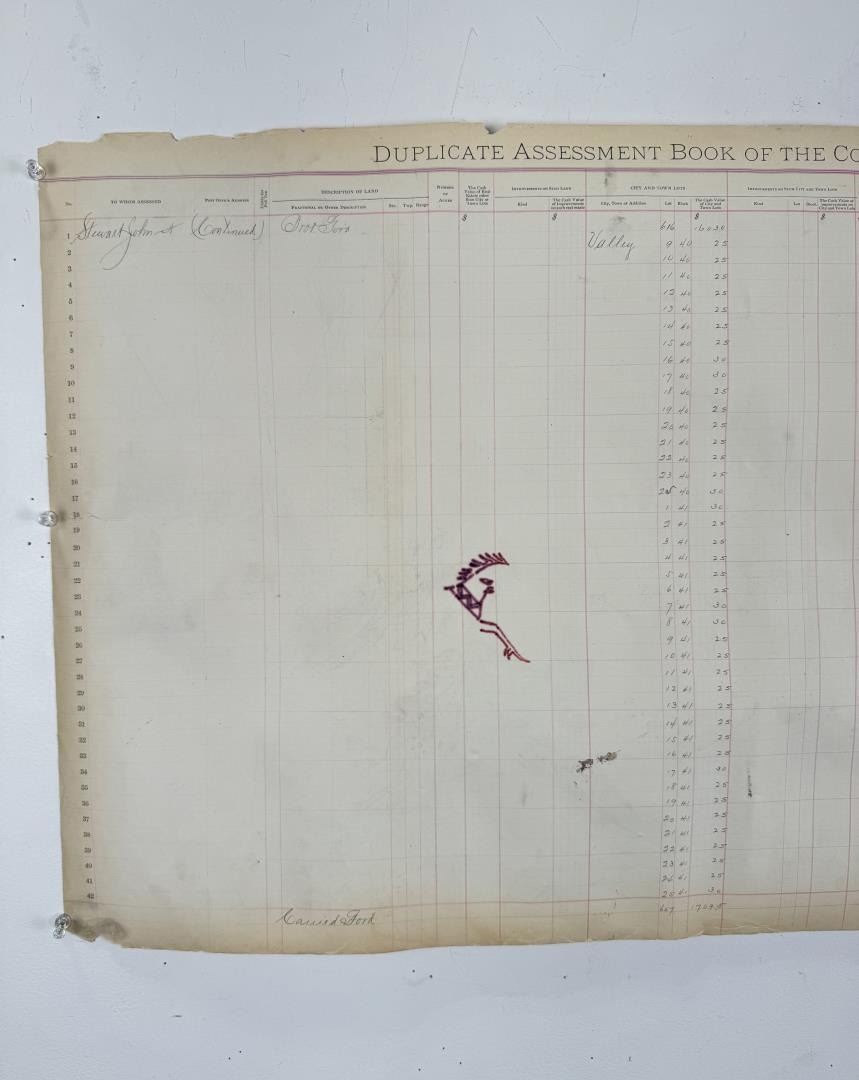 DUPLICATE ASSESSMENT BOOK OF THE CO
No. TO WHOM ASSESSED POST OFFICE ADDRESS DESCRIPTION OF LAND NUMBER OF ACRES The Cash Value of Real Estate other than City or Town Lots IMPROVEMENTS ON SUCH LAND CITY AND TOWN LOTS IMPROVEMENTS ON SUCH CITY AND TOWN LOTS
FRACTIONAL OR OTHER DESCRIPTION Sec. Twp. Range Kind The Cash Value of Improvements on such real estate City, Town or Addition Lot Block The Cash Value of City and Town Lots Kind Lot Block The Cash Value of Improvements on City and Town Lots
$ $ $ $
1 Stewart John (Continued) 616 16030
2 Valley 9 40 25
3 10 40 25
4 11 40 25
5 12 40 25
6 13 40 25
7 14 40 25
8 15 40 25
9 16 40 30
10 17 40 30
11 18 40 25
12 19 40 25
13 20 40 25
14 21 40 25
15 22 40 25
16 23 40 25
17 40 30
18 1 41 30
19 2 41 25
20 3 41 25
21 4 41 25
22 5 41 25
23 6 41 25
24 7 41 30
25 8 41 30
26 9 41 25
27 10 41 25
28 11 41 25
29 12 41 25
30 13 41 25
31 14 41 25
32 15 41 25
33 16 41 25
34 17 41 30
35 18 41 25
36 19 41 25
37 20 41 25
38 21 41 25
39 22 41 25
40 23 41 25
41 24 41 25
42 25 41 30
Carried Ford 657 17095